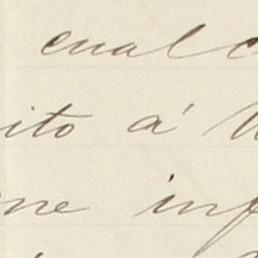 cual
ito á
ne inf